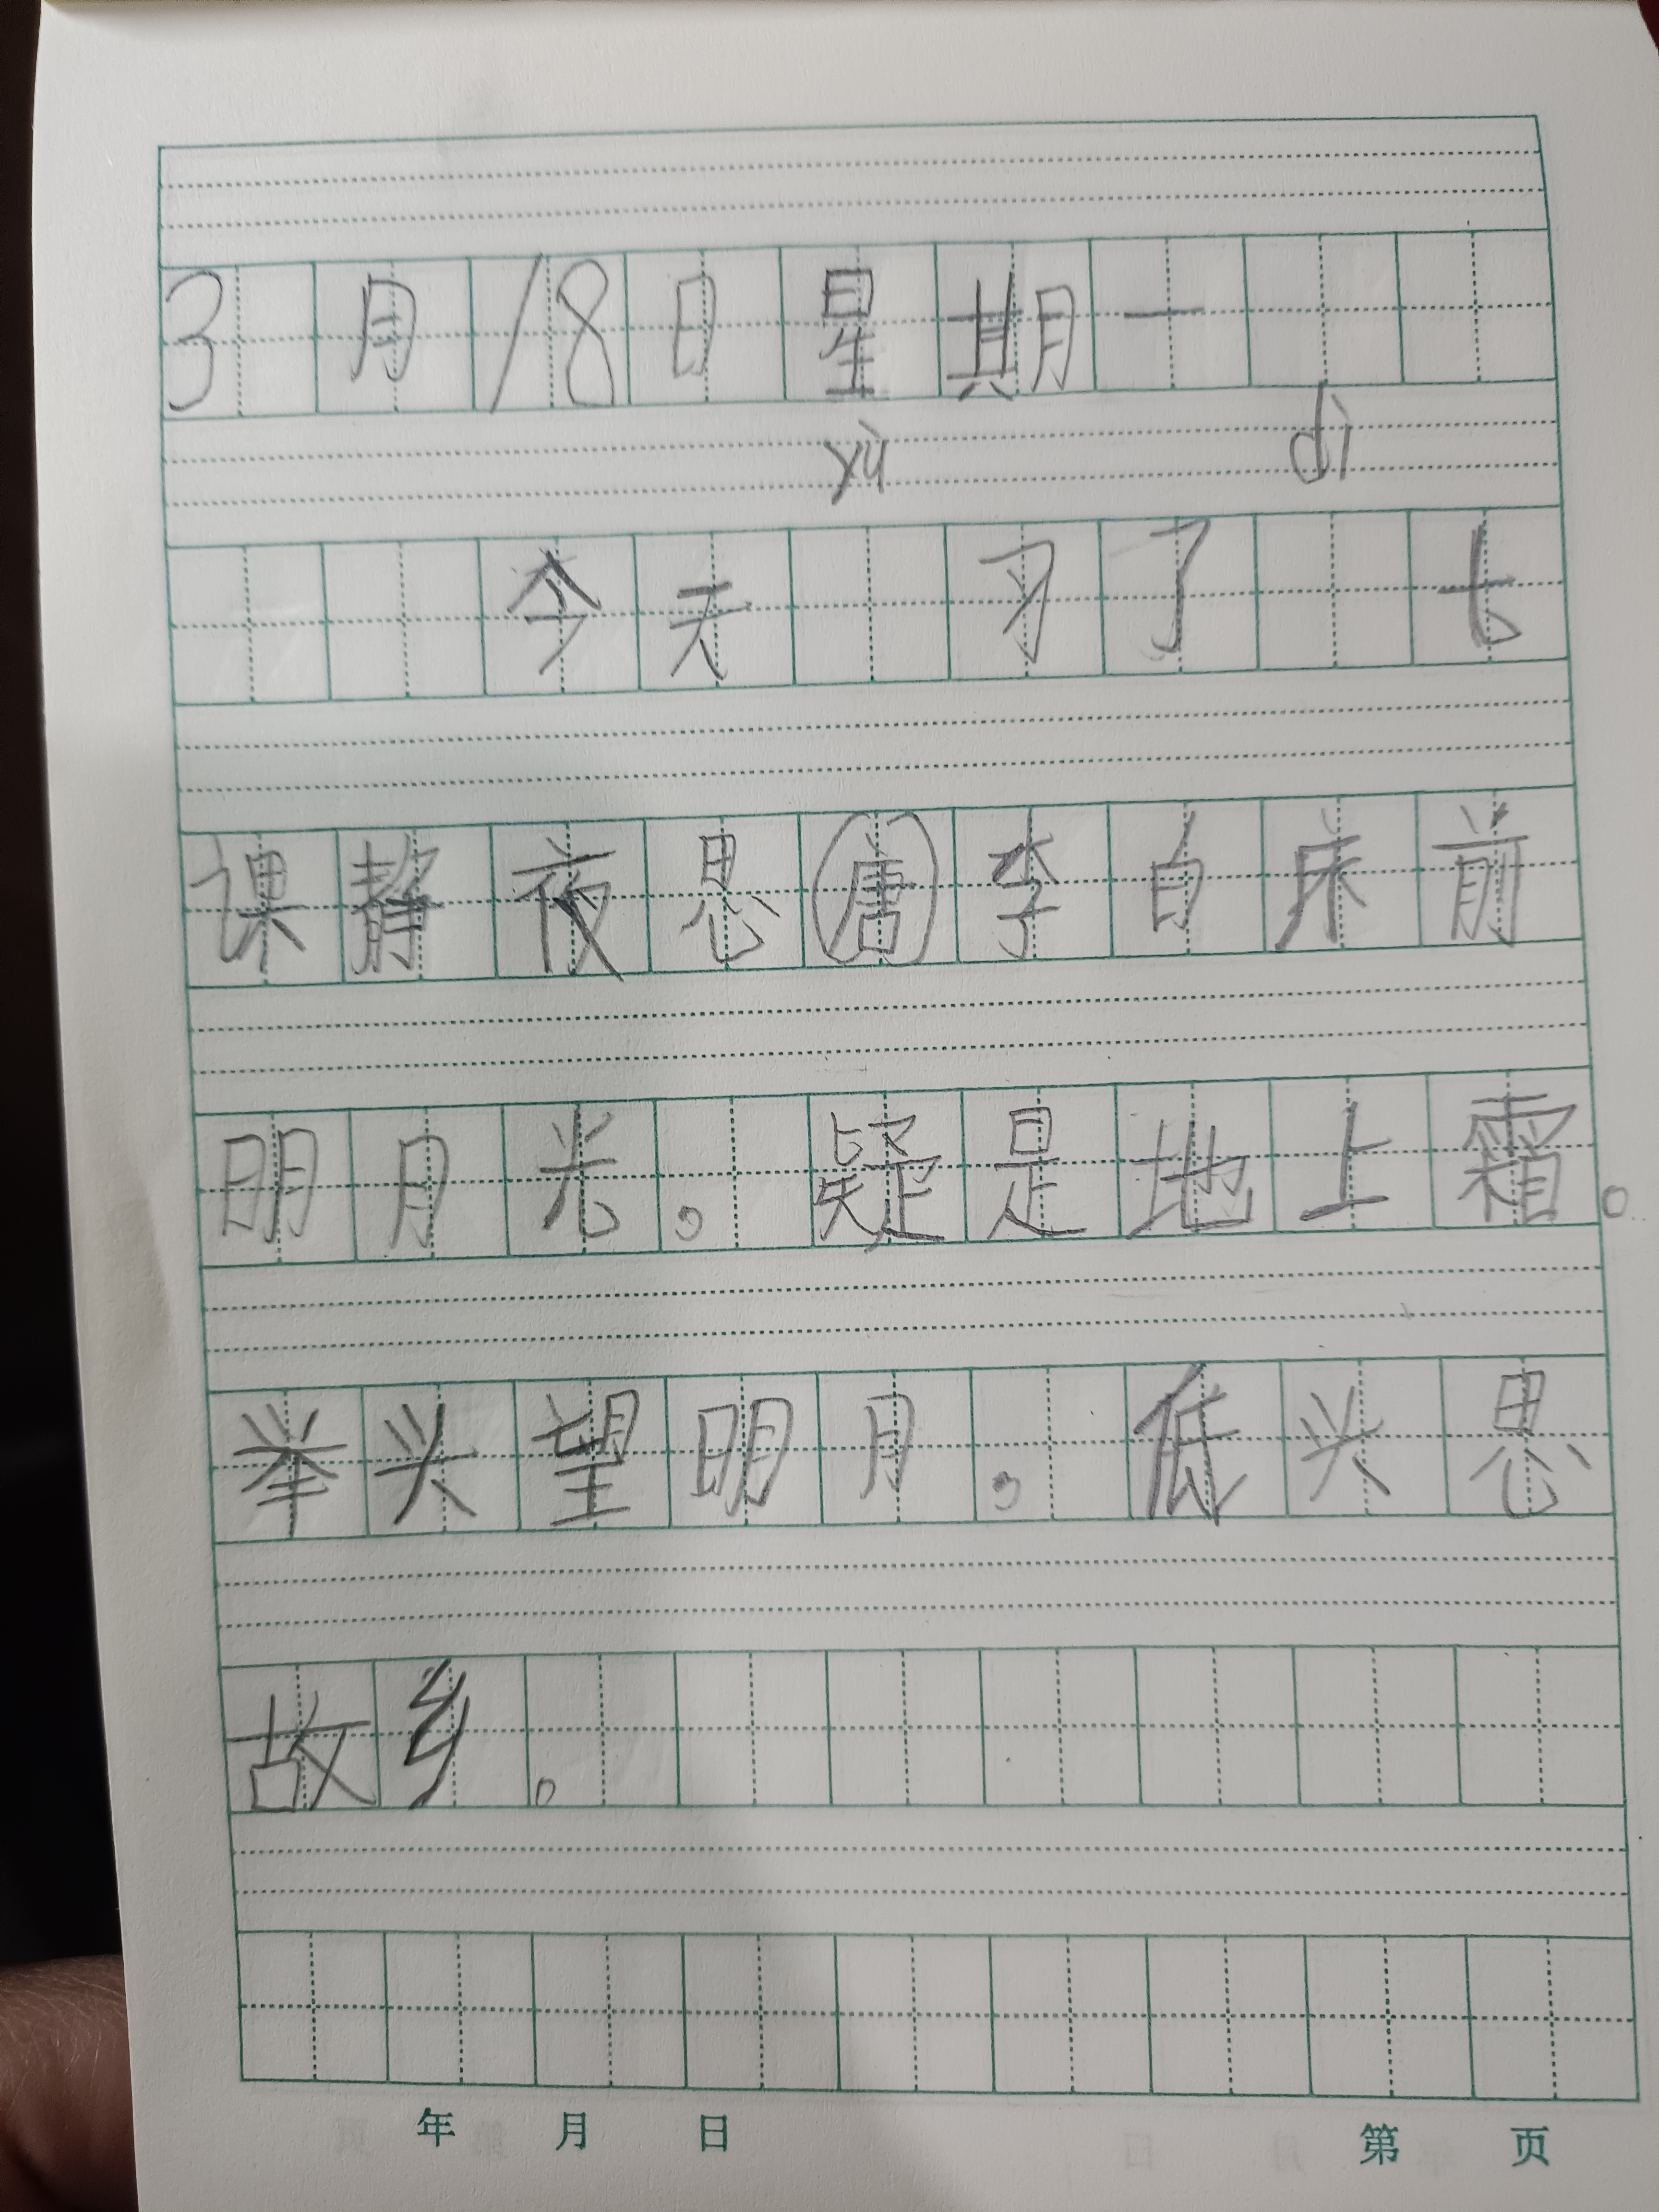 3月18日星期一
xù dì
今天习了七
课静夜思(唐)李白床前
明月光。疑是地上霜。
举头望明月,低头思
故乡。
年 月 日 第 页